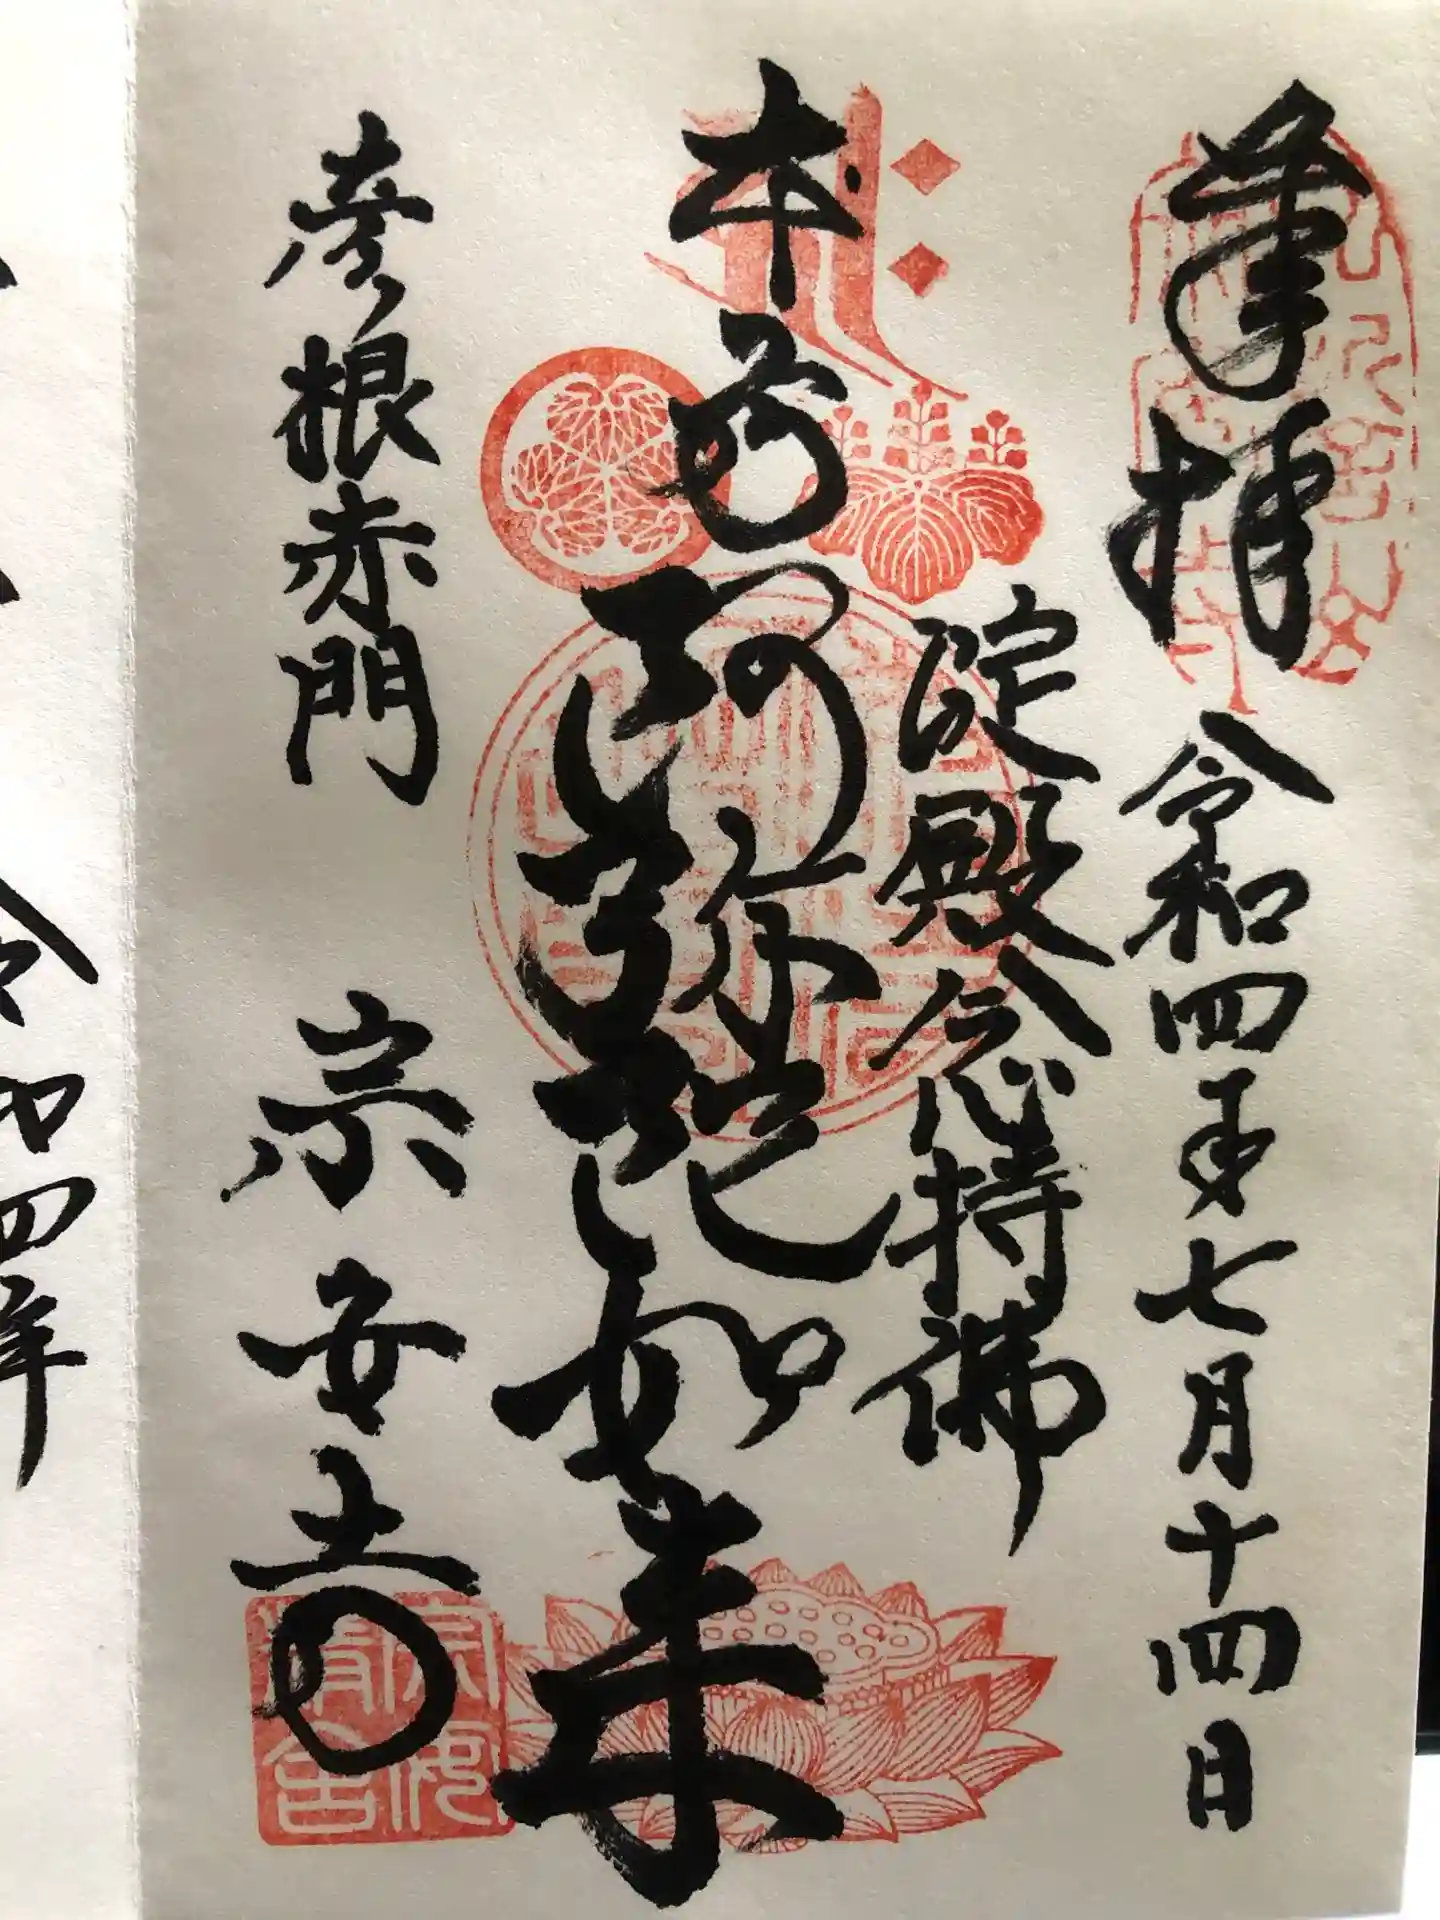 奉拝
令和四年七月十四日
淀殿念持佛
本尊阿弥陀如来
彦根赤門
宗安寺
令和四年